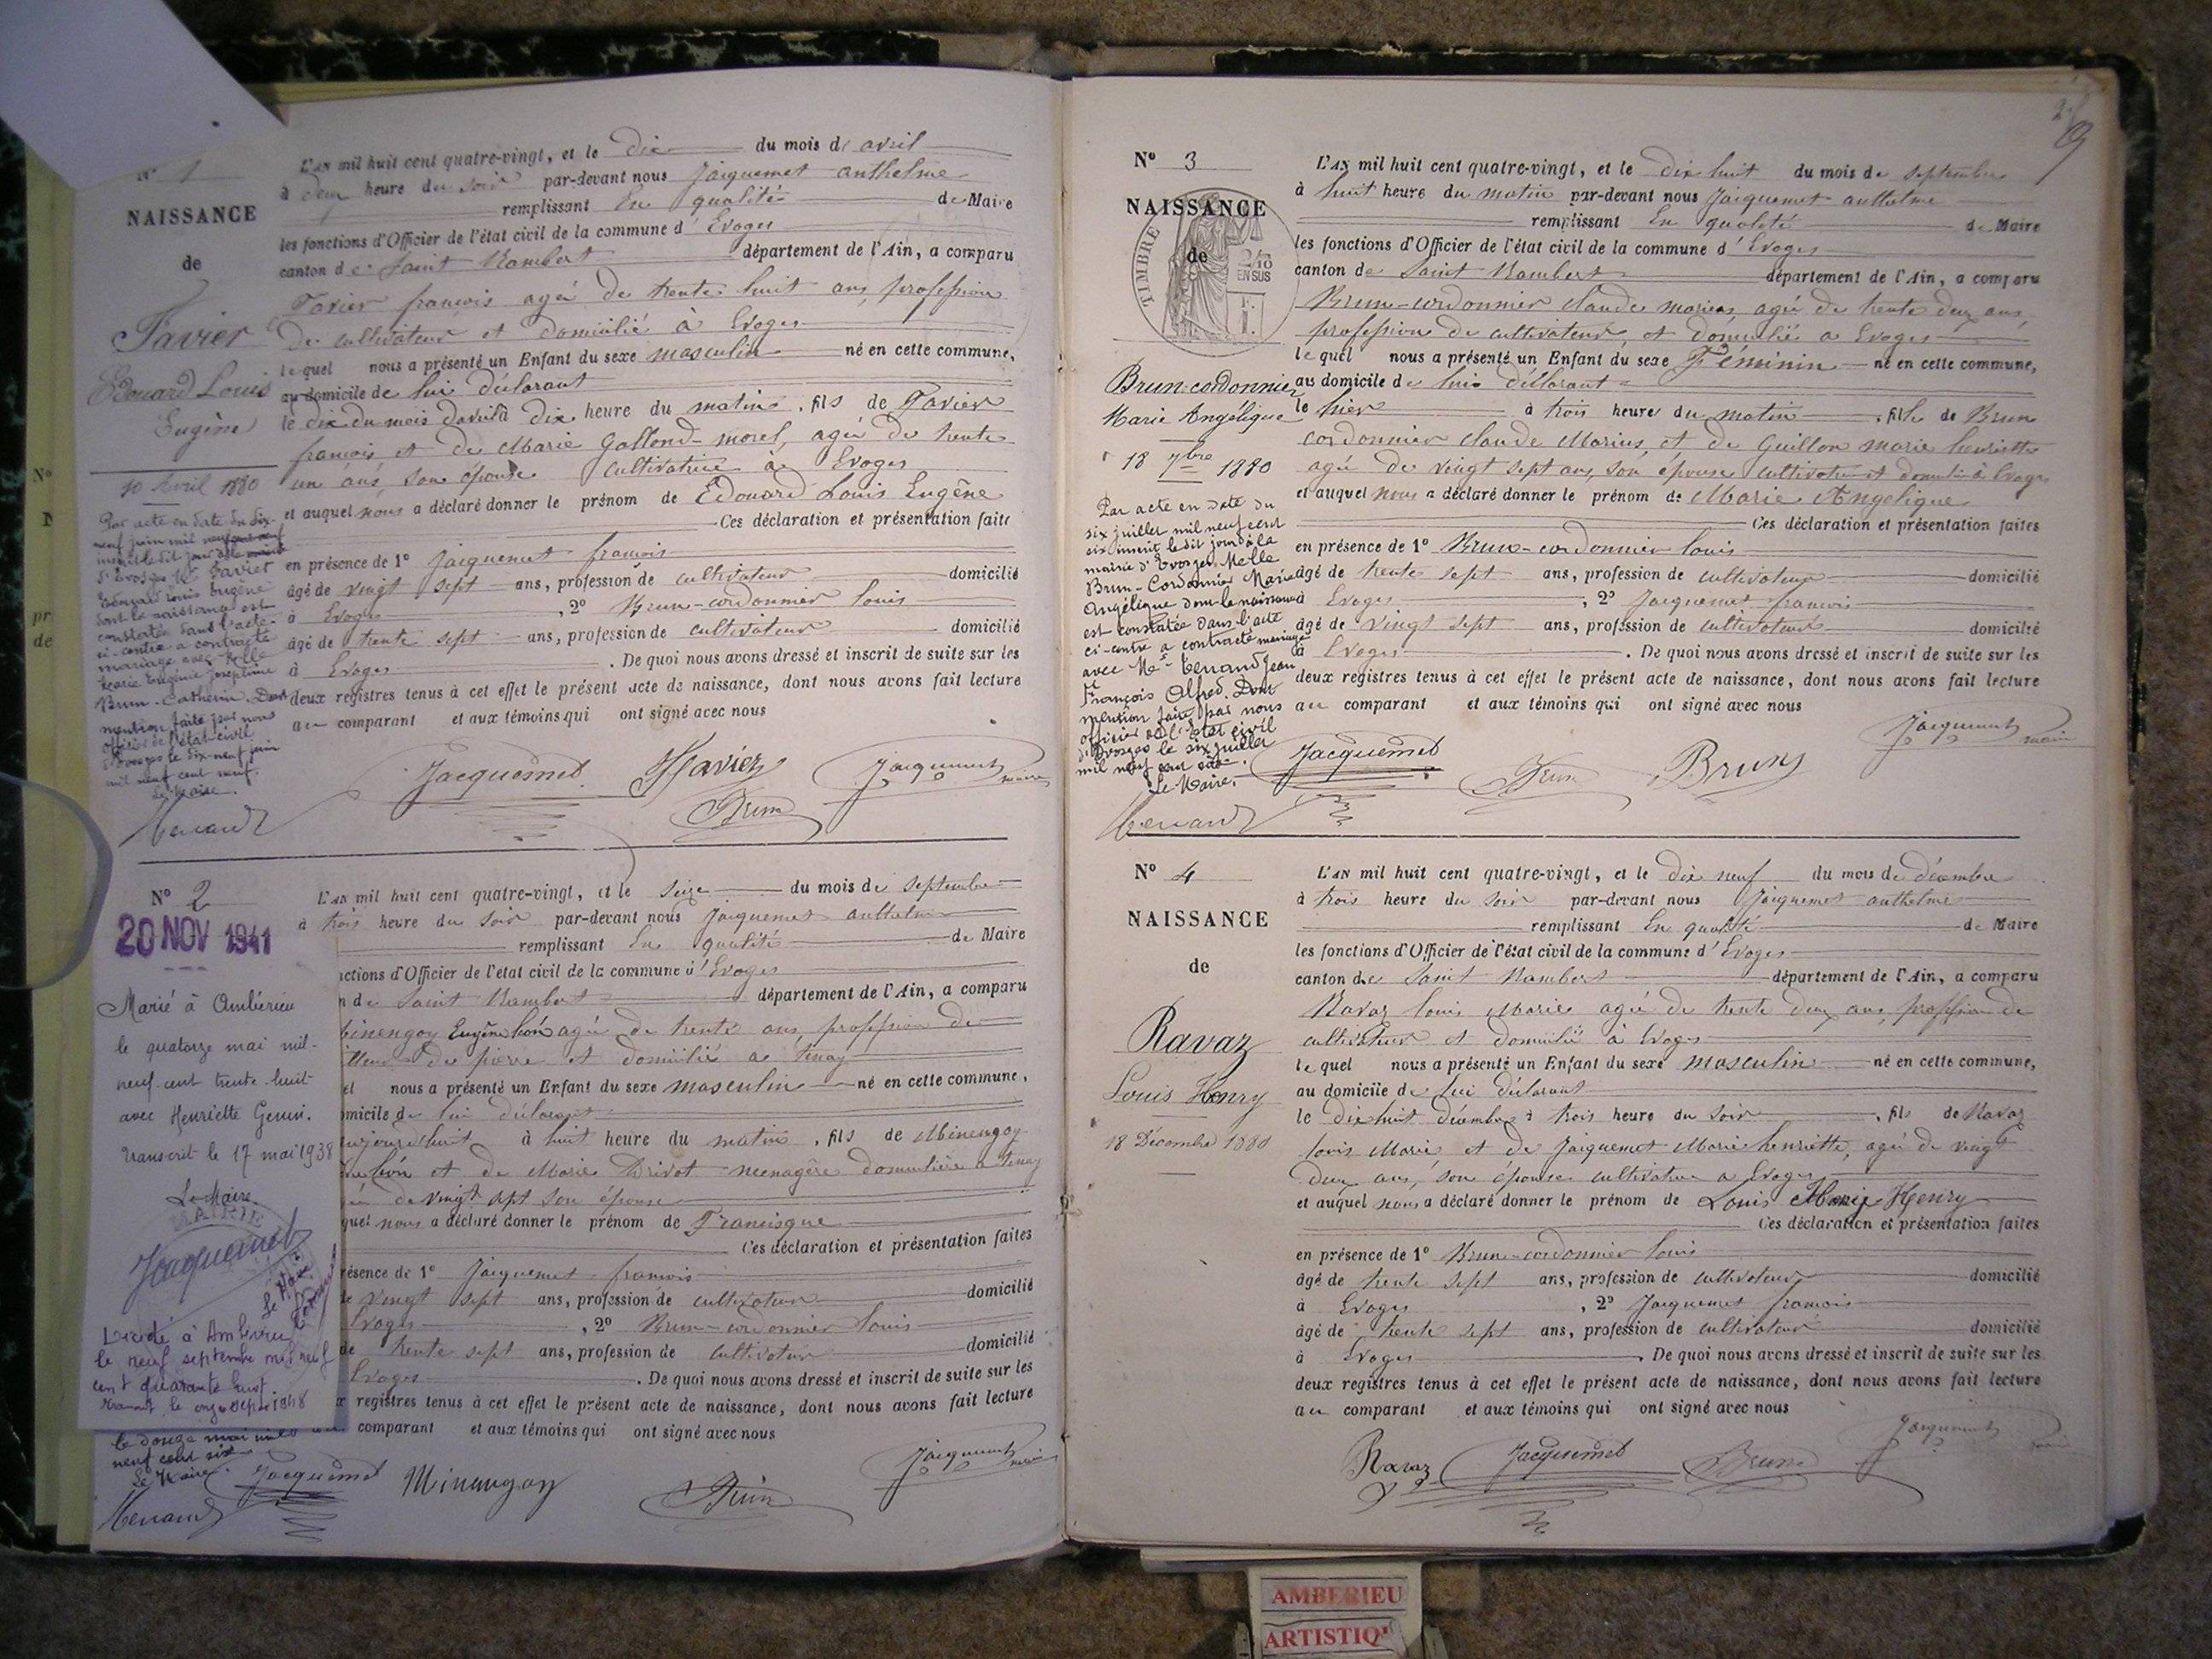 N° 1
NAISSANCE
de
Favier
Edouard Louis
Eugène
10 Avril 1880
Par acte en date du dix-
neuf juin mil
inscrit le dit jour
d'Evosges Mr Favier
Edouard Louis Eugène
dont la naissance est
constatée dans l'acte
ci-contre a contracté
mariage avec Melle
Marie Eugénie Joséphine
Brun-Catherin. Dont
mention faite par nous
officier de l'état civil
d'Evosges le dix-neuf juin
mil neuf cent neuf.
Le Maire.
L'AN mil huit cent quatre-vingt, et le dix du mois de avril
à deux heure du soir par-devant nous Jacquemet anthelme
remplissant En qualité de Maire
les fonctions d'Officier de l'état civil de la commune d'Evoges
canton de Saint Rambert département de l'Ain, a comparu
Favier françois agée de trente huit ans, profession
de cultivateur et domicilié à Evoges
lequel nous a présenté un Enfant du sexe masculin né en cette commune,
au domicile de lui déclarant
le dix du mois d'avril à dix heure du matin, fils de Favier
françois et de Marie Gallond-morel, agée de trente
un ans, son épouse cultivatrice à Evoges
et auquel nous a déclaré donner le prénom de Edouard Louis Eugène
Ces déclaration et présentation faite
en présence de 1° Jacquemet françois
âgé de vingt sept ans, profession de cultivateur domicilié
à Evoges, 2° Brun-cordonnier louis
âgé de trente sept ans, profession de cultivateur domicilié
à Evoges. De quoi nous avons dressé et inscrit de suite sur les
deux registres tenus à cet effet le présent acte de naissance, dont nous avons fait lecture
au comparant et aux témoins qui ont signé avec nous
Jacquemet Favier Jacquemet maire
Brun
N° 2
20 NOV 1941
Marié à Ambérieu
le quatorze mai mil-
neuf-cent trente-huit
avec Henriette Genin.
Transcrit le 17 mai 1938
Le Maire
MAIRIE
Jacquemet
Le Maire
Décédé à Ambérieu
le neuf septembre mil neuf
cent quarante huit
le onze sept 1948
le douze mai mil
neuf cent six
Le Maire.
L'AN mil huit cent quatre-vingt, et le seize du mois de septembre
à trois heure du soir par-devant nous Jacquemet anthelme
remplissant En qualité de Maire
nctions d'Officier de l'état civil de la commune d'Evoges
n de Saint Rambert département de l'Ain, a comparu
inengoy Eugène Léon agée de trente ans, profession de
illeur de pierre et domicilié à tenay
el nous a présenté un Enfant du sexe masculin né en cette commune,
omicile de lui déclarant
aujourd'huit à huit heure du matin, fils de Minengoy
Léon et de Marie Drivot menagère domicilière a tenay
de vingt sept son épouse
quel nous a déclaré donner le prénom de Francisque
Ces déclaration et présentation faites
résence de 1° Jacquemet françois
de vingt sept ans, profession de cultivateur domicilié
Evoges, 2° Brun-cordonnier louis
de trente sept ans, profession de cultivateur domicilié
Evoges. De quoi nous avons dressé et inscrit de suite sur les
x registres tenus à cet effet le présent acte de naissance, dont nous avons fait lecture
comparant et aux témoins qui ont signé avec nous
Jacquemet Minengoy Brun Jacquemet maire
N° 3
NAISSANCE
de
TIMBRE
2/10
EN SUS
Brun-cordonnier
Marie Angélique
18 7bre 1880
Par acte en date du
six juillet mil neuf cent
six inscrit le dit jour à la
mairie d'Evosges Melle
Brun-Cordonnier Marie
Angélique dont la naissance
est constatée dans l'acte
ci-contre a contracté mariage
avec Mr Jean
François Alfred. Dont
mention faite par nous
officier de l'Etat civil
d'Evosges le six juillet
mil neuf cent six.
Le Maire.
L'AN mil huit cent quatre-vingt, et le dix huit du mois de septembre
à huit heure du matin par-devant nous Jacquemet anthelme
remplissant En qualité de Maire
les fonctions d'Officier de l'état civil de la commune d'Evoges
canton de Saint Rambert département de l'Ain, a comparu
Brun-cordonnier claude marius, agée de trente deux ans,
profession de cultivateur, et domicilié a Evoges
lequel nous a présenté un Enfant du sexe Féminin né en cette commune,
au domicile de lui déclarant
le hier à trois heure du matin, fille de Brun
cordonnier claude Marius, et de Guillon marie henriette
agée de vingt sept ans, son épouse cultivatrice et domicilié à Evoges
et auquel nous a déclaré donner le prénom de Marie Angelique
Ces déclaration et présentation faites
en présence de 1° Brun-cordonnier louis
âgé de trente sept ans, profession de cultivateur domicilié
à Evoges, 2° Jacquemet françois
âgé de vingt sept ans, profession de cultivateur domicilié
à Evoges. De quoi nous avons dressé et inscrit de suite sur les
deux registres tenus à cet effet le présent acte de naissance, dont nous avons fait lecture
au comparant et aux témoins qui ont signé avec nous
Jacquemet Brun Brun Jacquemet maire
N° 4
NAISSANCE
de
Ravaz
Louis Henry
18 Décembre 1880
L'AN mil huit cent quatre-vingt, et le dix neuf du mois de décembre
à trois heure du soir par-devant nous Jacquemet anthelme
remplissant En qualité de Maire
les fonctions d'Officier de l'état civil de la commune d'Evoges
canton de Saint Rambert département de l'Ain, a comparu
Ravaz louis Marie agée de trente deux ans, profession de
cultivateur et domicilié à Evoges
lequel nous a présenté un Enfant du sexe masculin né en cette commune,
au domicile de lui déclarant
le dix huit décembre à trois heure du soir, fils de Ravaz
louis Marie et de Jacquemet Marie henriette, agée de vingt
deux ans, son épouse cultivatrice a Evoges
et auquel nous a déclaré donner le prénom de Louis Marie Henry
Ces déclaration et présentation faites
en présence de 1° Brun-cordonnier louis
âgé de trente sept ans, profession de cultivateur domicilié
à Evoges, 2° Jacquemet françois
âgé de trente sept ans, profession de cultivateur domicilié
à Evoges. De quoi nous avons dressé et inscrit de suite sur les
deux registres tenus à cet effet le présent acte de naissance, dont nous avons fait lecture
au comparant et aux témoins qui ont signé avec nous
Ravaz Jacquemet Brun Jacquemet
AMBERIEU
ARTISTIQ